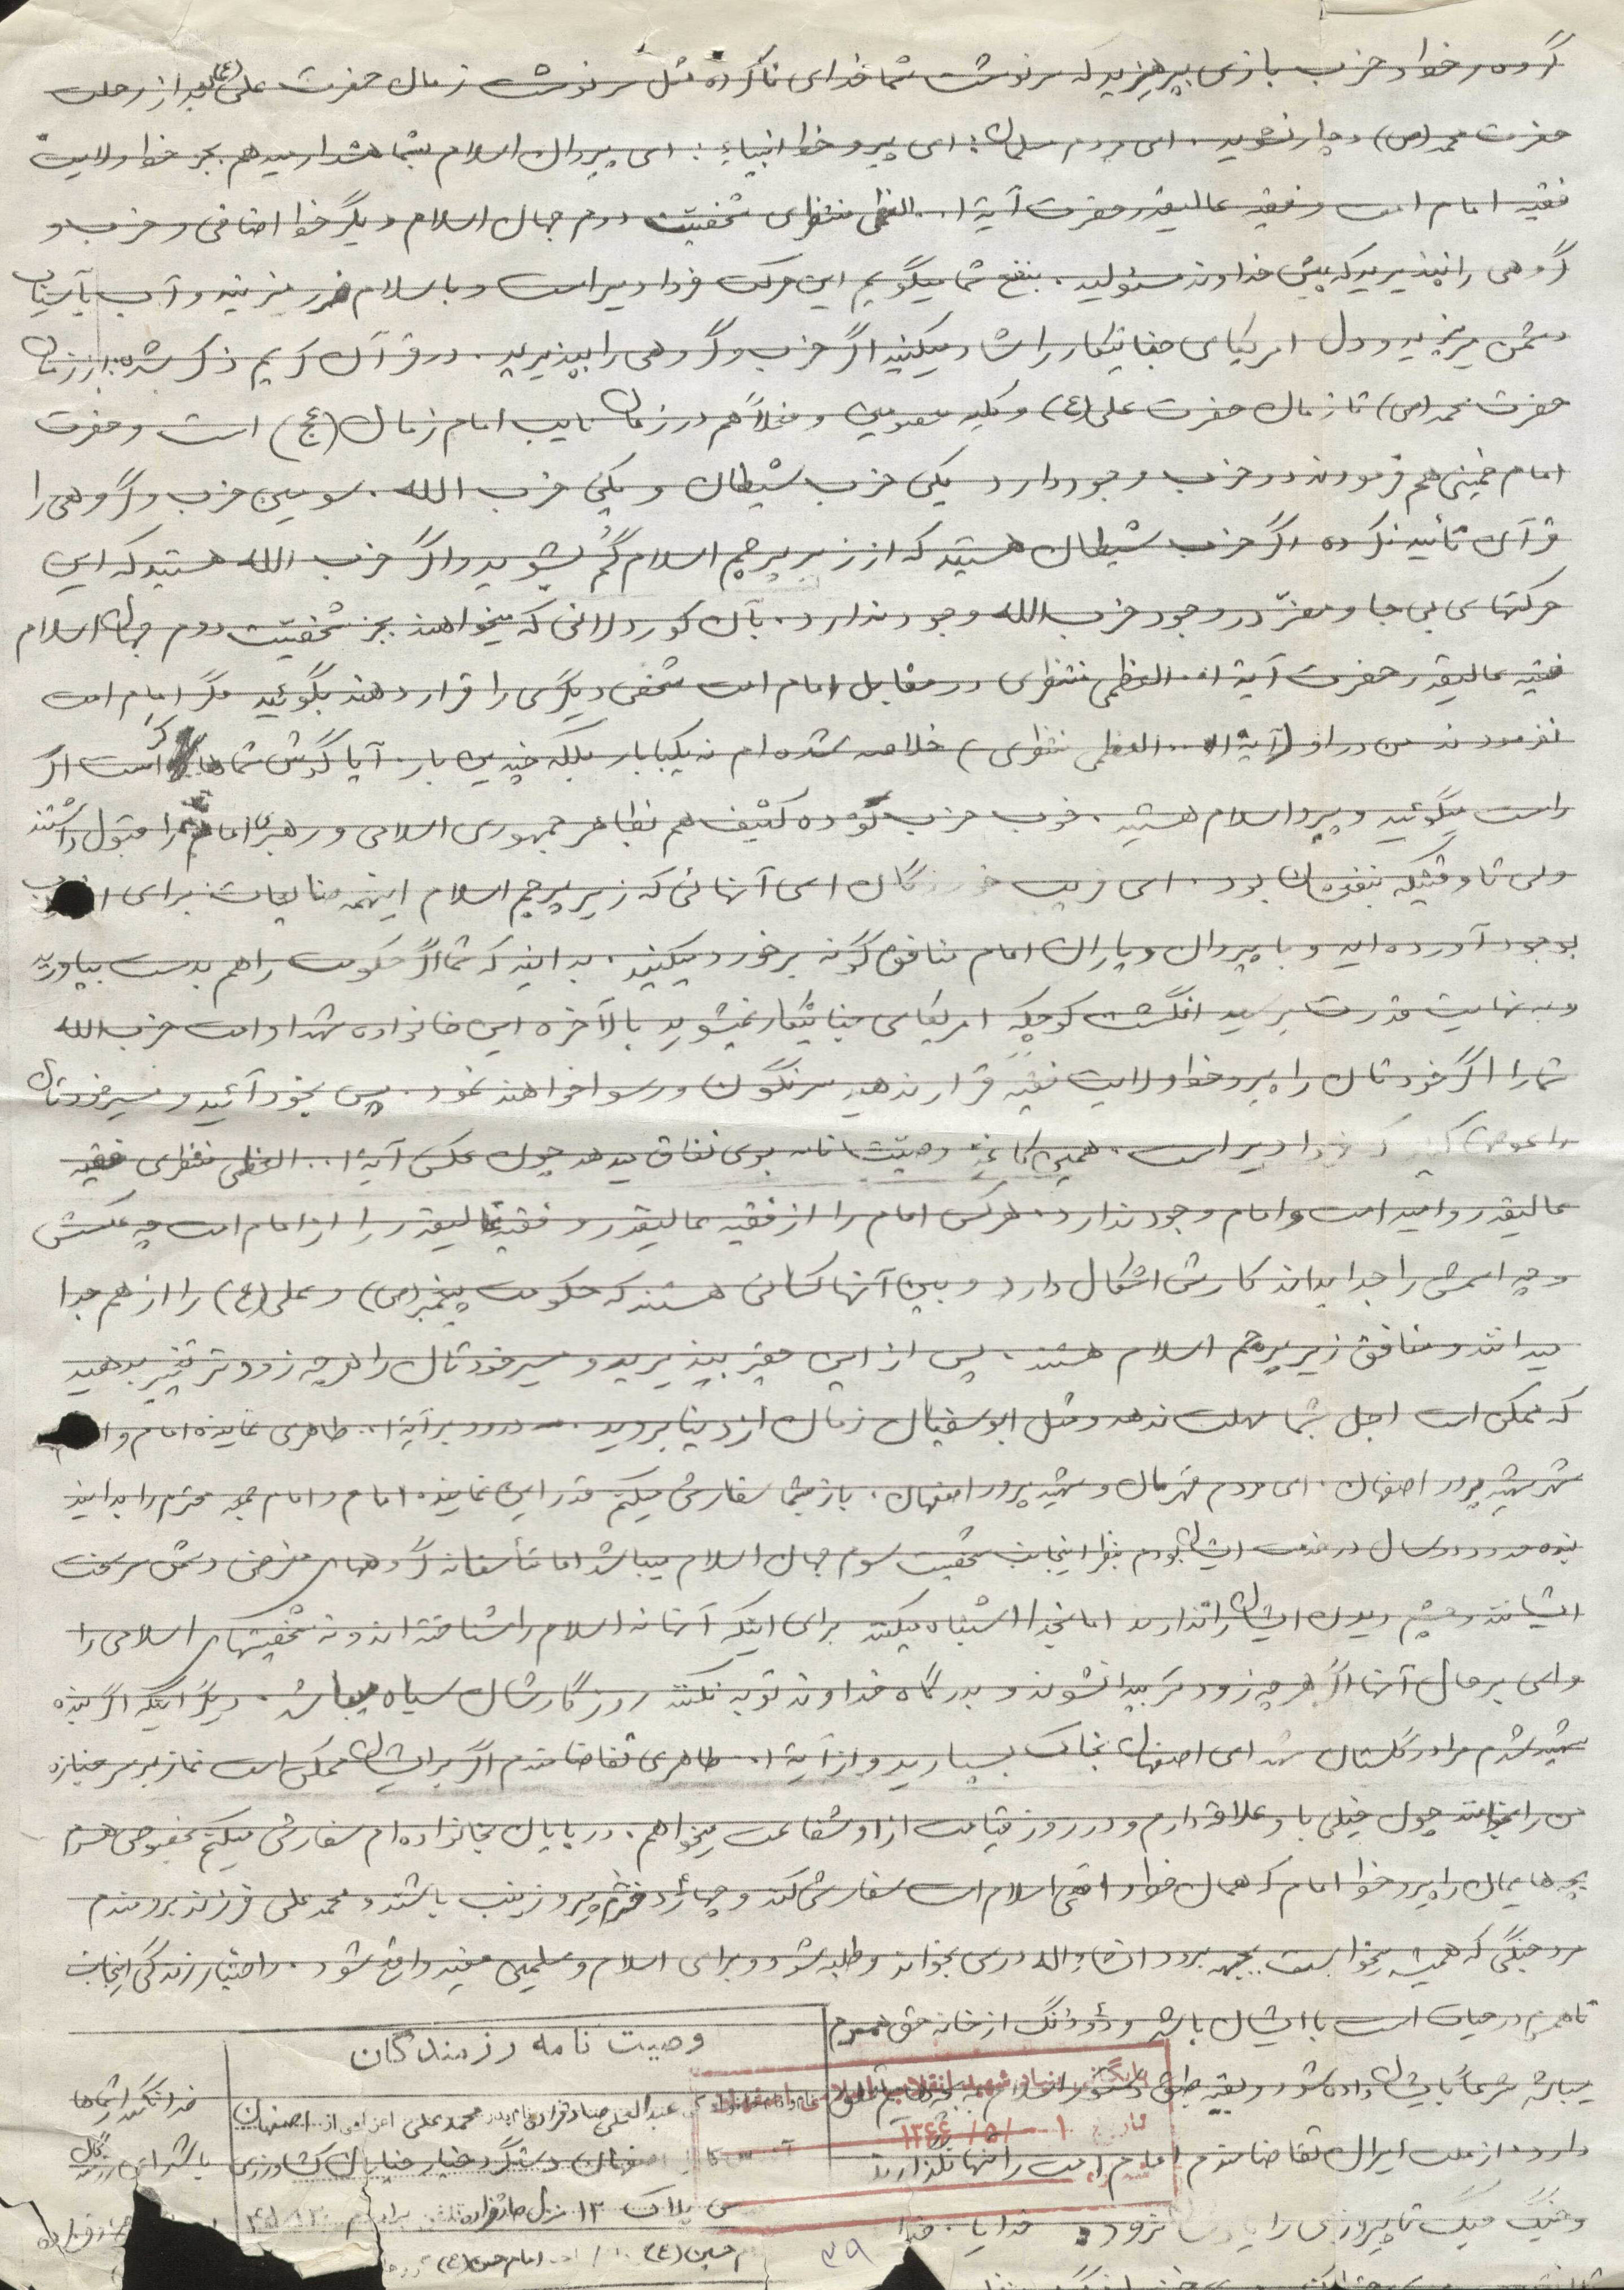 گروه و خط و حزب بازی بپرهیزید که سرنوشت شما خدای ناکرده مثل سرنوشت زمان حضرت علی (ع) بعد از رحلت
حضرت محمد (ص) دچار نشوید. ای مردم مسلمان: ای پیرو خط انبیاء: ای پیروان اسلام بشما هشدار میدهم بجز خط ولایت
فقیه امام امت و فقیه عالیقدر حضرت آیة ا... العظمی منتظری شخصیت دوم جهان اسلام دیگر خط اضافی و حزب و
گروهی را نپذیرید که پیش خداوند مسئولید. بنفع شما میگویم این حرکت فردا دیر است و باسلام ضرر میزنید و آب بآسیاب
دشمن میریزید و دل امریکای جنایتکار را شاد میکنید اگر حزب و گروهی را بپذیرید. در قرآن کریم ذکر شده: از زمان
حضرت محمد (ص) تا زمان حضرت علی (ع) و کلیه معصومین و فعلاً هم در زمان نایب امام زمان (عج) است و حضرت
امام خمینی هم فرمودند دو حزب وجود دارد یکی حزب شیطان و یکی حزب الله. سومین حزب و گروهی را
قرآن تأئید نکرده اگر حزب شیطان هستید که از زیر پرچم اسلام گم بشوید و اگر حزب الله هستید که این
حرکتهای بی جا و مضر در وجود حزب الله وجود ندارد. بآن کوردلانی که میخواهند بجز شخصیت دوم جهان اسلام
فقیه عالیقدر حضرت آیة ا... العظمی منتظری در مقابل امام امت شخص دیگری را قرار دهند بگوئید مگر امام امت
نفرمودند من در او (آیة ا... العظمی منتظری) خلاصه شده ام نه یکبار بلکه چندین بار. آیا گوش شماها کر است اگر
راست میگوئید و پیرو اسلام هستید. خوب حزب توده کثیف هم بظاهر جمهوری اسلامی و رهبری امام را قبول داشتند
ولی تا وقتیکه بنفعشان بود. ای فریب خوردگان ای آنهائی که زیر پرچم اسلام اینهمه ضایعات برای
بوجود آورده اید و با پیروان و یاران امام منافق گونه برخورد میکنید. بدانید که شما اگر حکومت را هم بدست بیاورید
و به نهایت قدرت برسید انگشت کوچکه امریکای جنایتکار نمیشوید بالاخره این خانواده شهدا و امت حزب الله
شما را اگر خودتان را پیرو خط ولایت فقیه قرار ندهید سرنگون و رسوا خواهند نمود. پس بخود آئید و مسیر خودتان
را عوض کنید که فردا دیر است. همین کاغذ وصیت نامه بوی نفاق میدهد چون عکس آیة ا... العظمی منتظری فقیه
عالیقدر و امید امت و امام وجود ندارد. هر کس امام را از فقیه عالیقدر و فقیه عالیقدر را از امام امت چه عکسش
و چه اسمش را جدا بداند کارش اشکال دارد و بین آنها کسانی هستند که حکومت پیغمبر (ص) و علی (ع) را از هم جدا
میدانند و منافق زیر پرچم اسلام هستند. پس از این حقیر بپذیرید و مسیر خودتان را هر چه زودتر تغییر بدهید
که ممکن است اجل بشما مهلت ندهد و مثل ابوسفیان زمان از دنیا بروید. درود بر آیة ا... طاهری نماینده امام و
شهر شهید پرور اصفهان. ای مردم قهرمان و شهید پرور اصفهان. باز بشما سفارش میکنم قدر این نماینده امام و امام جمعه محترم را بدانید
بنده حدود دو سال در خدمت ایشان بودم بنظر اینجانب شخصیت سوم جهان اسلام میباشد اما متأسفانه گروههای مغرض دشمن سرسخت
ایشانند و چشم دیدن ایشان را ندارند اما بخدا اشتباه میکنند برای اینکه آنها نه اسلام را شناخته اند و نه شخصیتهای اسلامی را
وای بر حال آنها اگر هر چه زودتر بیدار نشوند و بدرگاه خداوند توبه نکنند روزگارشان سیاه میباشد. دیگر اینکه اگر بنده
شهید شدم مرا در گلستان شهدای اصفهان بخاک بسپارید و از آیة ا... طاهری تقاضامندم اگر برایشان ممکن است نماز بر سر جنازه
من را بخوانند چون خیلی باو علاقه دارم و در روز قیامت از او شفاعت میخواهم. در پایان بخانواده ام سفارش میکنم بخصوص همسرم
بچه هایمان را پیرو خط امام که همان خط واقعی اسلام است سفارش کند و چهار دخترم پیرو زینب باشند و محمد علی فرزند برومندم
مرد جنگی که همیشه میخواست بجبهه برود انشاء الله درس بخواند و طلبه شود و برای اسلام و مسلمین مفید واقع شود. و اختیار زندگی اینجانب
تا همسرم در حیات است با ایشان باشد و دو دانگ از خانه حق همسرم
میباشد شرعاً بایشان داده شود و بقیه طبق دستور اسلام به بچه هایم تعلق
دارد. از ملت ایران تقاضامندم امام امت را تنها نگذارند
و جنگ جنگ تا پیروزی را یادشان نرود. خدایا. خدا
وصیت نامه رزمندگان
عبدالعلی صادقزاده نام پدر محمد علی اعزامی از اصفهان
اصفهان دستگرد خیار خیابان کشاورزی
پلاک ۱۳ منزل صادقزاده تلفن
امام حسین (ع)
تاریخ ۱ /۵/ ۱۳۶۶
۳۹